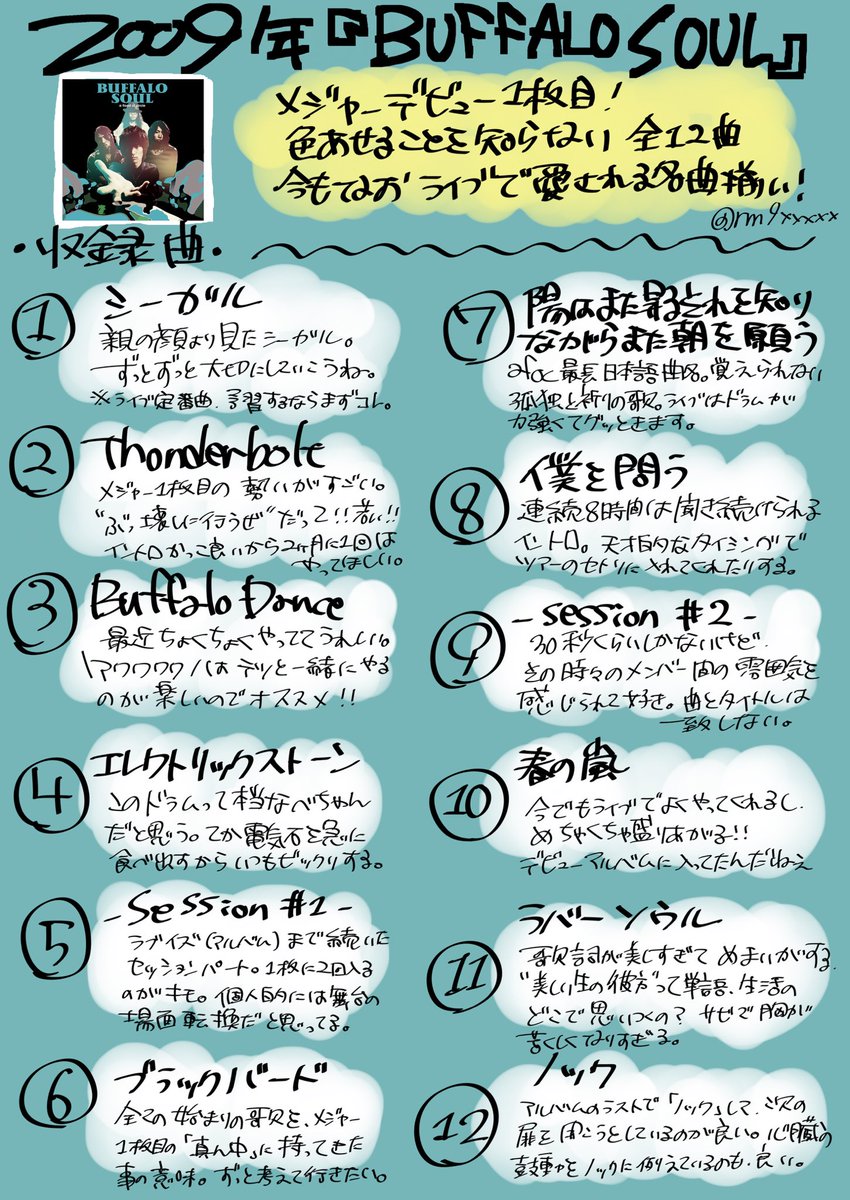 2009年『BUFFALO SOUL』
BUFFALO
SOUL
メジャーデビュー1枚目!
色あせることを知らない 全12曲
今もなお ライブで愛される名曲揃い!
@rm9xxxxx
・収録曲・
① シーガル
親の顔より見たシーガル。
ずっとずっと大切にしていこうね。
※ライブ定番曲、予習するならまずコレ。
② Thunderbolt
メジャー1枚目の 勢いがすごい。
“ぶっ壊しに行うぜ”だって!!若い!!
イントロかっこ良いから2ヶ月に1回は
やってほしい。
③ Buffalo Dance
最近ちょくちょくやっててうれしい。
アワワワワ/は テツと一緒にやる
のが楽しいのでオススメ!!
④ エレクトリックストーン
このドラムって本当なべちゃん
だと思う。てか電気石を急に
食べ出すからいつもビックリする。
⑤ -Session #1-
ラブイズ(アルバム)まで続いた
セッションパート。1枚に2回入る
のがキモ。個人的には舞台の
場面転換だと思ってる。
⑥ ブラックバード
全ての始まりの歌を、メジャー
1枚目の「真ん中」に持ってきた
事の意味。ずっと考えて行きたい。
⑦ 陽はまた昇るそれを知り
ながらまた朝を願う
afoc最長日本語曲名。覚えられない
孤独と祈りの歌。ライブはドラムが
力強くてグッときます。
⑧ 僕を問う
連続8時間は聞き続けられる
イントロ。天才的なタイミングで
ツアーのセトリに入れてくれたりする。
⑨ -session #2-
30秒くらいしかないけど、
その時々のメンバー間の雰囲気を
感じられて好き。曲とタイトルは
一致しない。
⑩ 春の嵐
今でもライブでよくやってくれるし、
めちゃくちゃ盛りあがる!!
デビューアルバムに入ってたんだねえ
⑪ ラバーソウル
歌詞が美しすぎて めまいがする。
“美しい生の彼方”って単語、生活の
どこで思いつくの? サビで胸が
苦しくなりすぎる。
⑫ ノック
アルバムのラストで「ノック」して、次の
扉を開こうとしているのが良い。心臓の
鼓動をノックに例えているのも、良い。